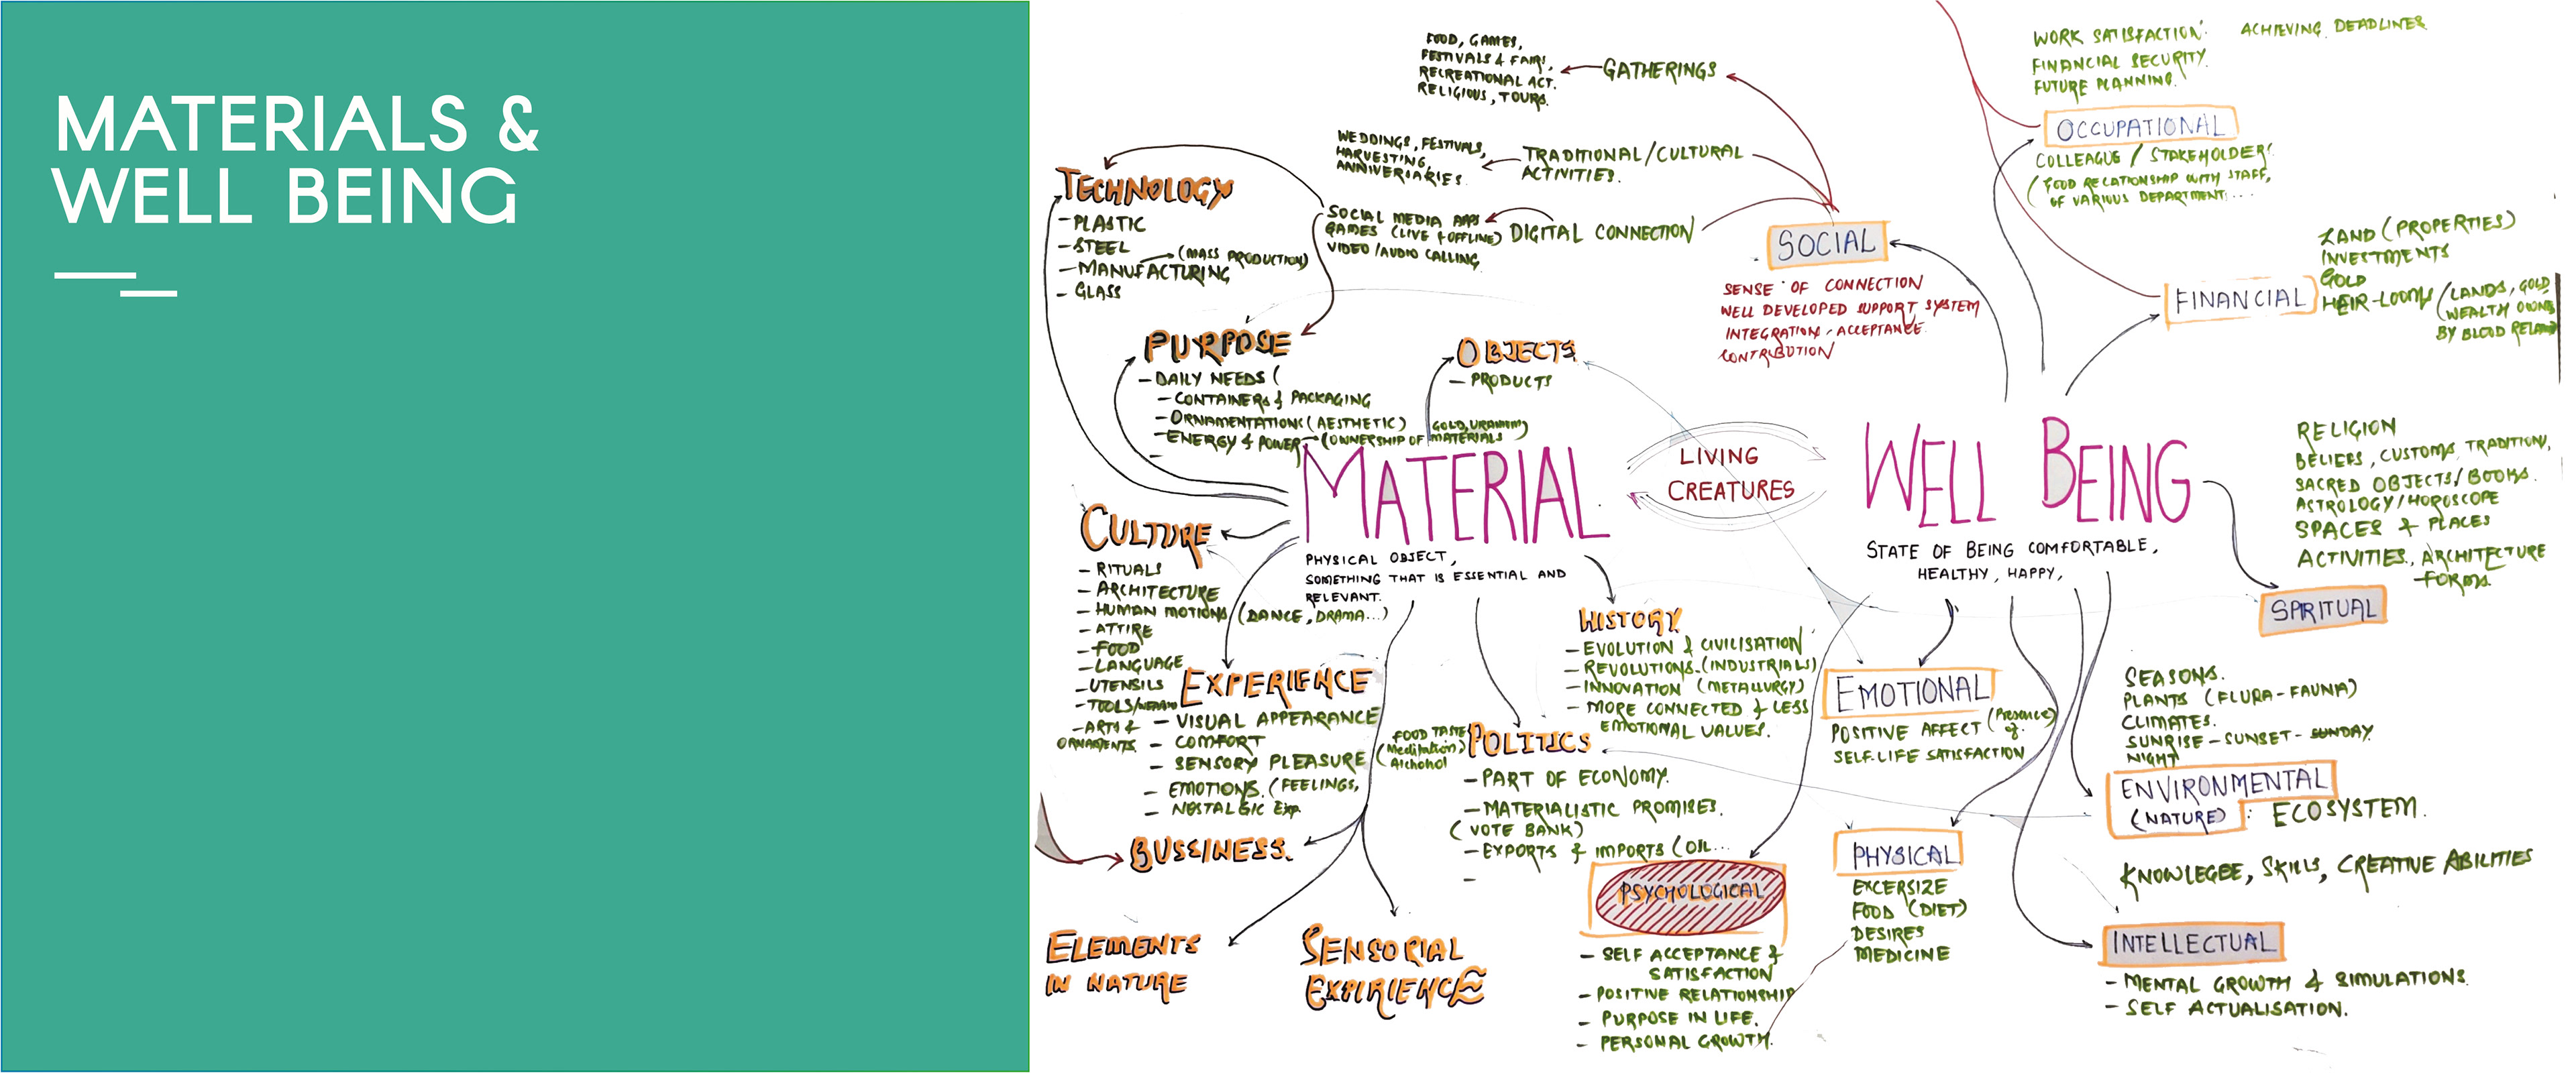 MATERIALS &
WELL BEING
FOOD, GAMES,
FESTIVALS & FAIRS,
RECREATIONAL ACT.
RELIGIOUS, TOURS.
GATHERINGS
WEDDINGS, FESTIVALS,
HARVESTING,
ANNIVERSARIES.
TRADITIONAL/CULTURAL
ACTIVITIES.
SOCIAL MEDIA APPS
GAMES (LIVE & OFFLINE)
VIDEO/AUDIO CALLING
DIGITAL CONNECTION
SOCIAL
SENSE OF CONNECTION
WELL DEVELOPED SUPPORT SYSTEM
INTEGRATION, ACCEPTANCE
CONTRIBUTION
TECHNOLOGY
- PLASTIC
- STEEL
- MANUFACTURING
(MASS PRODUCTION)
- GLASS
PURPOSE
- DAILY NEEDS (
- CONTAINERS & PACKAGING
- ORNAMENTATIONS (AESTHETIC)
- ENERGY & POWER → (OWNERSHIP OF MATERIALS
GOLD, URANIUM)
OBJECTS
- PRODUCTS
MATERIAL
PHYSICAL OBJECT,
SOMETHING THAT IS ESSENTIAL AND
RELEVANT.
LIVING
CREATURES
WELL BEING
STATE OF BEING COMFORTABLE,
HEALTHY, HAPPY,
CULTURE
- RITUALS
- ARCHITECTURE
- HUMAN MOTIONS (DANCE, DRAMA...)
- ATTIRE
- FOOD
- LANGUAGE
- UTENSILS
- TOOLS/
- ARTS &
ORNAMENTS
EXPERIENCE
- VISUAL APPEARANCE
- COMFORT
- SENSORY PLEASURE
FOOD TASTE
(Meditation)
Alchohol
- EMOTIONS. (FEELINGS,
- NOSTALGIC EXP.
BUSSINESS.
ELEMENTS
IN NATURE
SENSORIAL
EXPIRIENCE
HISTORY
- EVOLUTION & CIVILISATION
- REVOLUTIONS- (INDUSTRIALS)
- INNOVATION (METALLURGY)
- MORE CONNECTED & LESS
EMOTIONAL VALUES.
POLITICS
- PART OF ECONOMY.
- MATERIALISTIC PROMISES.
(VOTE BANK)
- EXPORTS & IMPORTS (OIL...
PSYCHOLOGICAL
- SELF ACCEPTANCE &
SATISFACTION
- POSITIVE RELATIONSHIP
- PURPOSE IN LIFE.
- PERSONAL GROWTH.
EMOTIONAL
POSITIVE AFFECT (Presence)
of
SELF-LIFE SATISFACTION
PHYSICAL
EXCERSIZE
FOOD (DIET)
DESIRES
MEDICINE
WORK SATISFACTION.
ACHIEVING DEADLINES
FINANCIAL SECURITY.
FUTURE PLANNING.
OCCUPATIONAL
COLLEAGUE / STAKEHOLDER.
(GOOD RELATIONSHIP WITH STAFF,
OF VARIOUS DEPARTMENT....
LAND (PROPERTIES)
INVESTMENTS
GOLD
FINANCIAL
HEIR-LOOMS (LANDS, GOLD,
WEALTH OWNE
BY BLOOD RELA
RELIGION
BELIEFS, CUSTOMS, TRADITION,
SACRED OBJECTS/BOOKS.
ASTROLOGY/HOROSCOPE
SPACES & PLACES
ACTIVITIES., ARCHITECTURE
FORMS.
SPRITUAL
SEASONS.
PLANTS (FLURA-FAUNA)
CLIMATES.
SUNRISE-SUNSET-SUNDAY.
NIGHT
ENVIRONMENTAL
(NATURE) : ECOSYSTEM.
KNOWLEGEE, SKILLS, CREATIVE ABILITIES
INTELLECTUAL
- MENTAL GROWTH & SIMULATIONS.
- SELF ACTUALISATION.